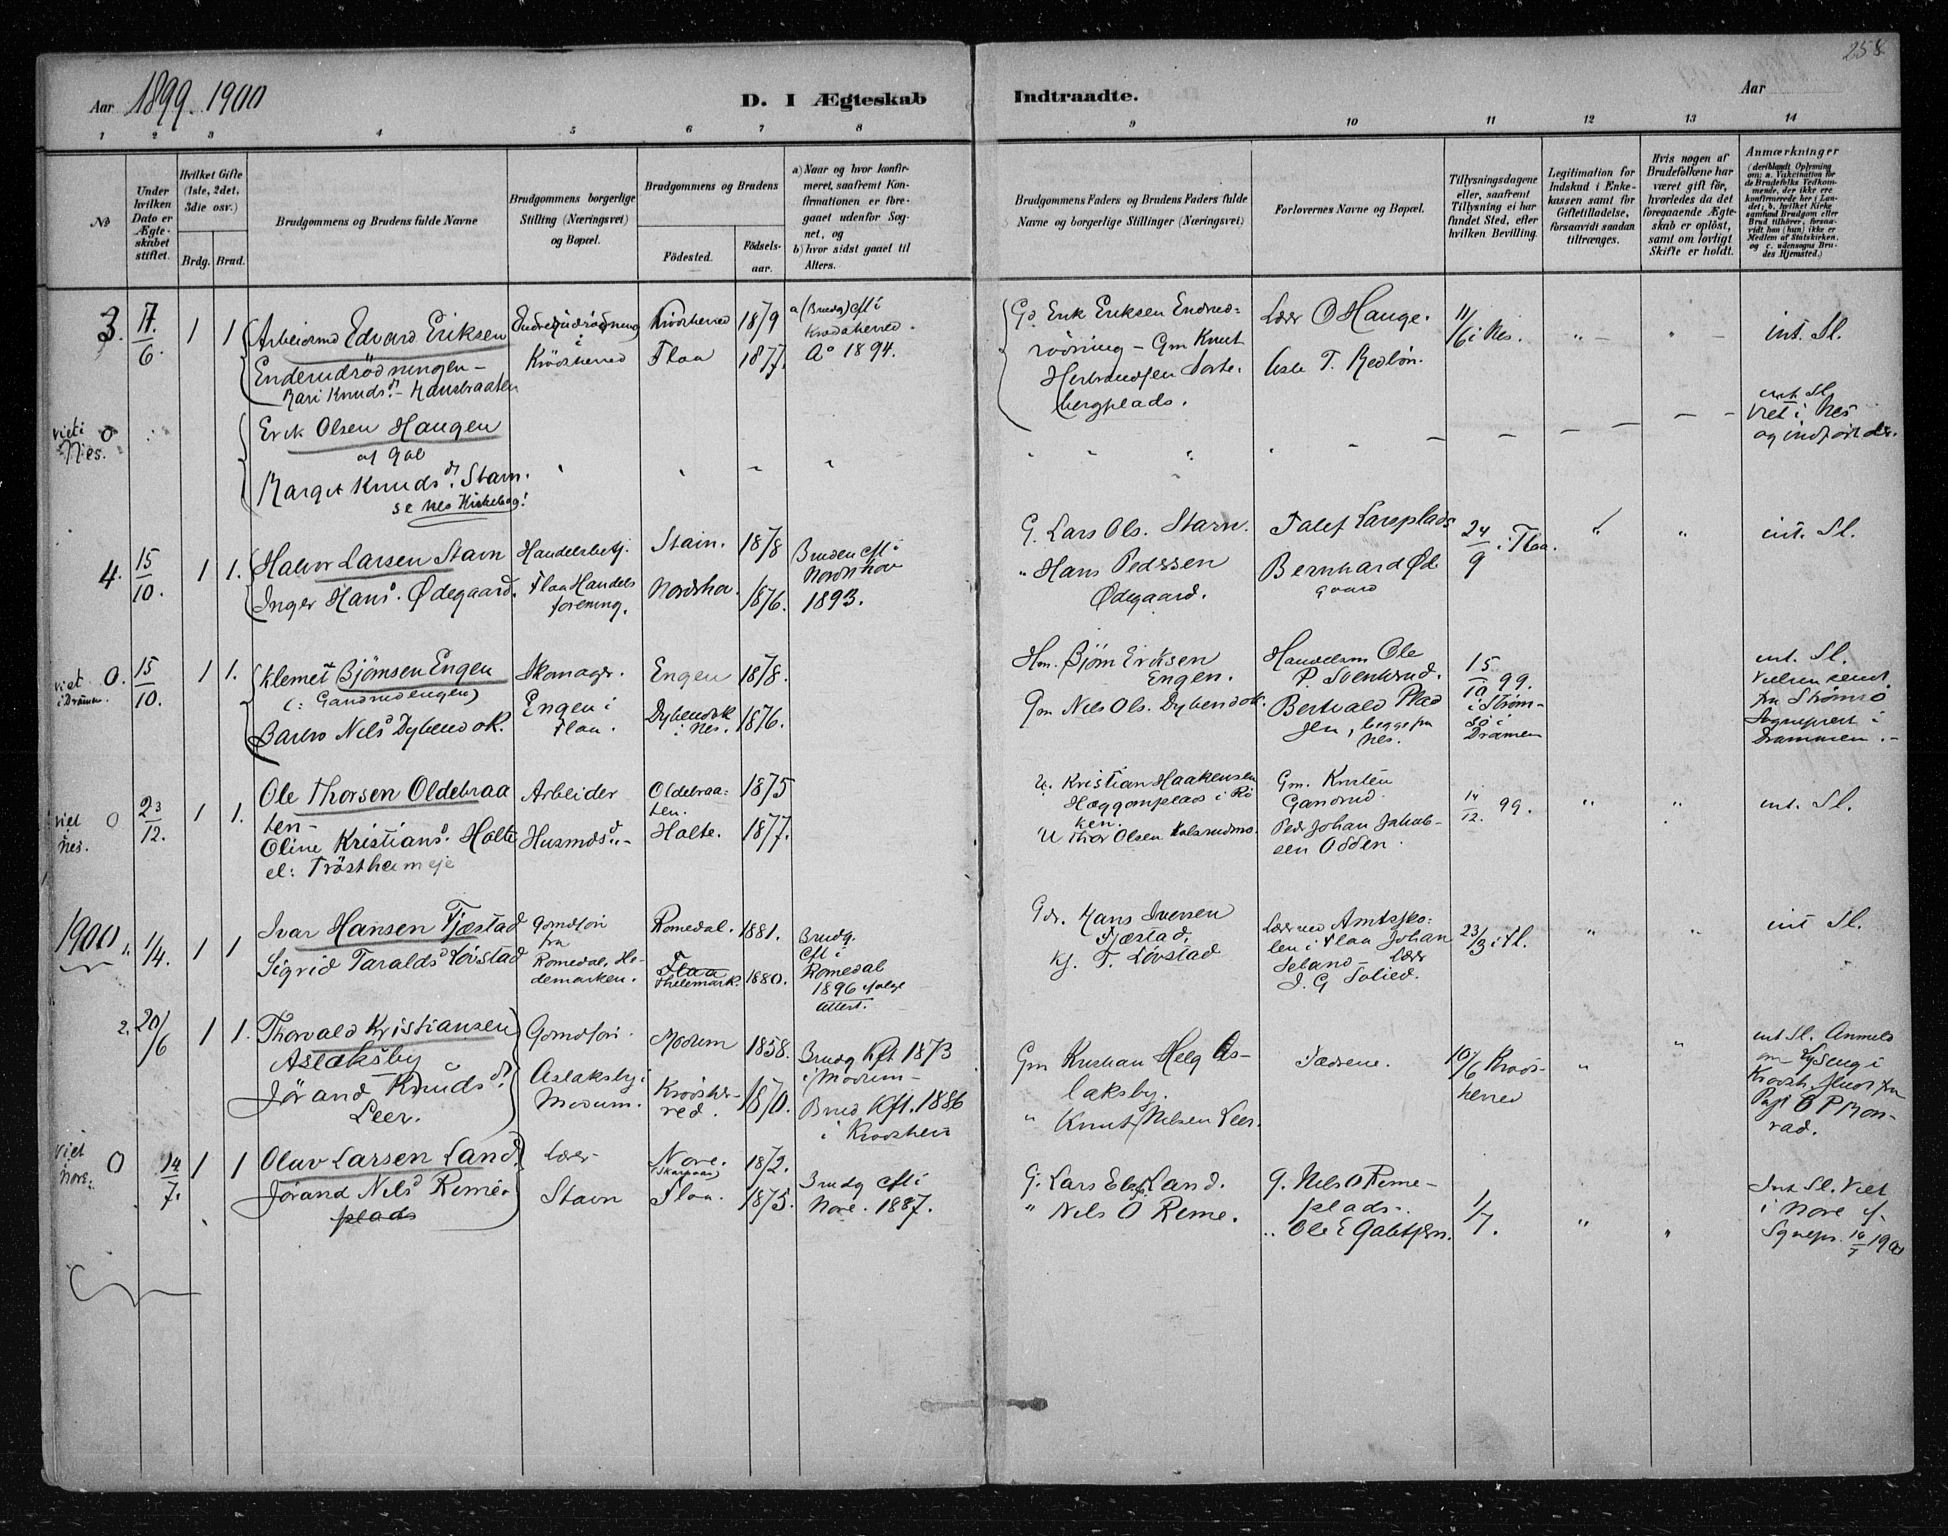 258
Aar 1899. 1900
D. I Ægteskab Indtraadte.
Aar
1 2 3 4 5 6 7 8 9 10 11 12 13 14
No
Under hvilken Dato er Ægteskabet stiftet.
Hvilket Gifte (1ste, 2det, 3die osv.)
Brdg. Brud.
Brudgommens og Brudens fulde Navne
Brudgommens borgerlige Stilling (Næringsvei) og Bopæl.
Brudgommens og Brudens
Fødested.
Fødselsaar.
a) Naar og hvor konfirmeret, saafremt Konfirmationen er foregaaet udenfor Sognet, og
b) hvor sidst gaaet til Alters.
Brudgommens Faders og Brudens Faders fulde Navne og borgerlige Stillinger (Næringsvei)
Forlovernes Navne og Bopæl.
Tillysningsdagene eller, saafremt Tillysning ei har fundet Sted, efter hvilken Bevilling.
Legitimation for Indskud i Enkekassen samt for Giftetilladelse, forsaavidt saadan tiltrænges.
Hvis nogen af Brudefolkene har været gift før, hvorledes da det foregaaende Ægteskab er opløst, samt om lovligt Skifte er holdt.
Anmærkninger
(deriblandt Oplysning om: a. Vakcination for de Brudefolks Vedkommende, der ikke ere konfirmerede her i Landet; b. hvilket Kirkesamfund Brudgom eller Brud tilhører, forsaavidt han (hun) ikke er Medlem af Statskirken, og c. udensogns Brudes Hjemsted.)
3. 17/6. 1 1
Edvard Eriksen
Enderudrödningen -
Kari Knudsd. -
i
Krödsherred
Krödsherred 1879
Flaa 1877.
a (Brudg) cft i
Krødsherred.
Ao 1894.
Gd. Erik Eriksen Endrud-
rödning - Gm Knut
bergplads.
Lærer O Hauge.
11/6 i Nes.
int. Sl.
viet i
Nes. 0
Erik Olsen Haugen
af Gol
Margit Knudsd. Stavn.
se Nes Kirkebog!
int. Sl.
viet i Nes
og indført der.
4. 15/10. 1 1.
Halvor Larsen Stavn
Inger Hansd. Ødegaard.
Handelsbetj.
Flaa Handels
forening.
Stavn. 1878
Nordrhov. 1876.
Bruden cft i
Nordrhov
1893.
G. Lars Ols. Stavn.
" Hans Pedersen
Ødegaard.
Bernhard Øde
gaard
24/9 i Flaa.
int. Sl.
viet
i Drammen. 0. 15/10. 1 1.
Klemet Bjørnsen Engen
(: Gandrudengen)
Barbro Nelsd Dybendok.
Skomager.
Engen i
Flaa.
Engen 1878.
Dybendok
i Nes. 1876.
Hm. Bjørn Eriksen
Engen.
Gm Nels Ols. Dybendok.
Handelsm Ole
P. Svenkrud.
Bertvald Plad
sen, begge fra
Nes.
15/10 99.
i Strøm-
sø i
Drammen
int. Sl.
fra Strømsø
Sogneprest i
Drammen. -
viet
i
Nes. 0 23/12. 1 1.
Ole Thorsen Oldebraa
ten -
Oline Kristiansd. Holte
el: Tröstheimeje
Arbeider
Husmdsd. -
Oldebraa-
ten. 1875
Holte. 1877.
U. Kristian Haakensen
Hæggenplads i Rö
ken.
U Thor Olsen
Gm. Knuten
Gandrud.
Pedr Johan Jakob-
sen Odden.
14/12. 99.
int. Sl.
1900 1. 1/4. 1 1
Ivar Hansen Fjæstad
Sigrid Taraldsd Løvstad
Gdmdson
fra
Romedal, He-
demarken.
Romedal. 1881.
Flaa
Thelemark. 1880.
Brudg.
cft i
Romedal
1896 ifølge
Attest.
Gdr. Hans Iversen
Fjæstad.
Kj. T. Løvstad
Lærer ved Amtssko-
len i Flaa Johan
Seland - Lærer
J. G Solied.
23/3 i Fl.
int Sl.
2. 20/6 1 1.
Thorvald Kristiansen
Aslaksby
Jörand Knudsd.
Leer.
Gdmdson.
Aslaksby i
Modum.
Modum 1858.
Krødsher-
red. 1870.
Brudg Kft 1873
i Modum -
Brud Kft. 1886
i Krødsherr
Gm Kristian Helg As-
laksby.
" Knut Nilsen Leer.
Fædrene.
10/6 Krøds-
herred
int Sl. Anmeld
om Lysning i
viet
i
Nore. 0 14/7. 1 1
Oluv Larsen Land.
Jörand Nelsd Reme-
plads
Lærer
Stavn
Nore. 1872.
Flaa. 1875.
Brudg cft i
Nore. 1887.
G. Lars Land.
" Nels O Reme.
G. Nels O Reme-
plads.
" Ole E Gabtjern.
1/7.
Int Sl. Viet
i Nore